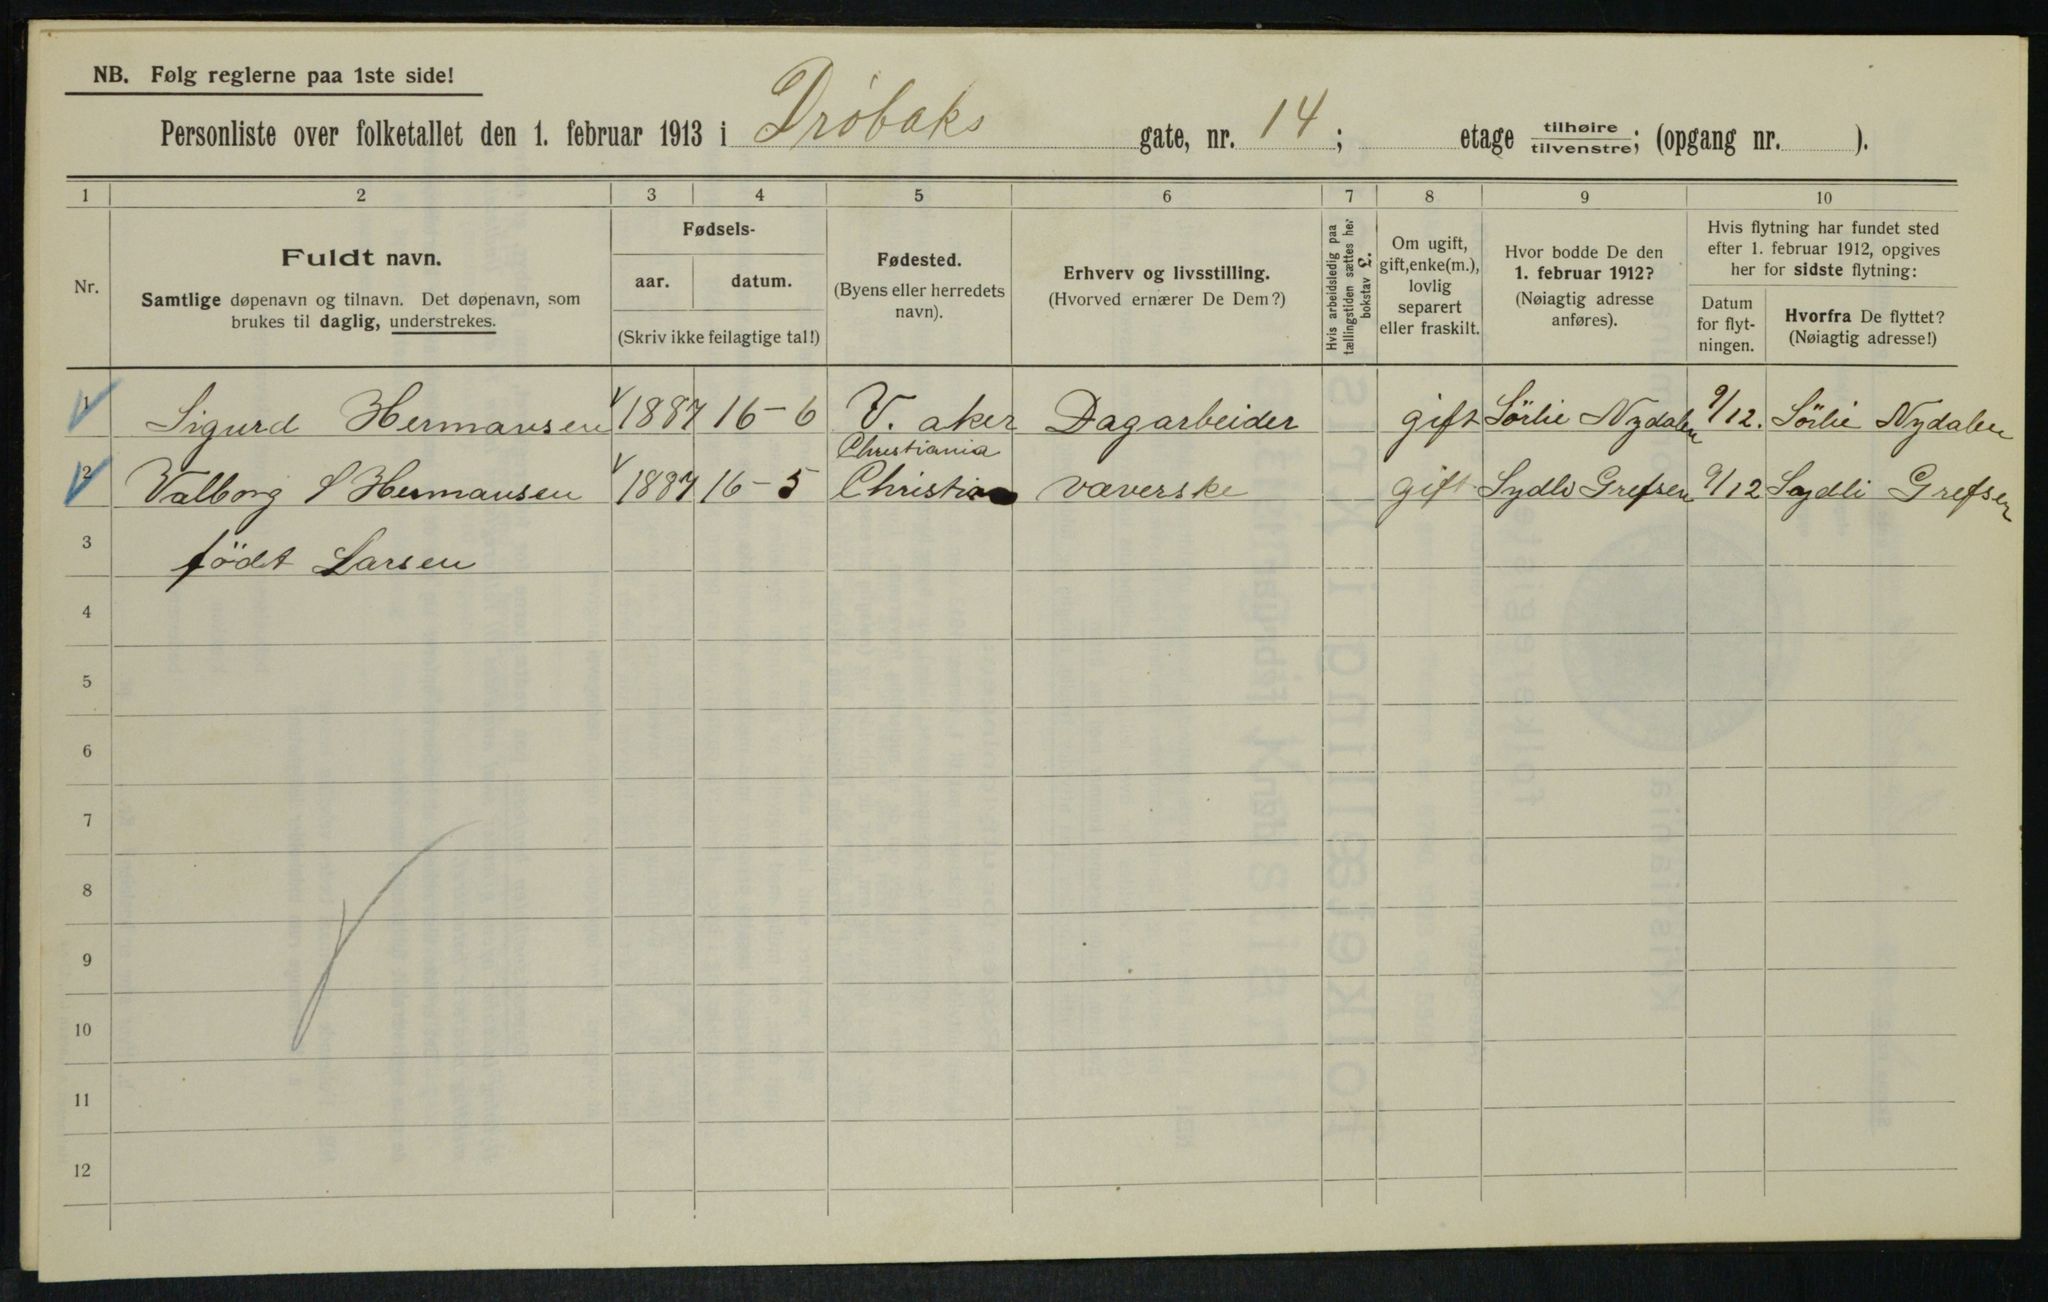 NB. Følg reglerne paa 1ste side!
Personliste over folketallet den 1. februar 1913 i Drøbaks gate, nr. 14; etage tilhøire tilvenstre; (opgang nr. ).
1 2 3 4 5 6 7 8 9 10
Nr.
Fuldt navn.
Samtlige døpenavn og tilnavn. Det døpenavn, som
brukes til daglig, understrekes.
Fødsels-
aar. datum.
(Skriv ikke feilagtige tal!)
Fødested.
(Byens eller herredets
navn).
Erhverv og livsstilling.
(Hvorved ernærer De Dem?)
Hvis arbeidsledig paa
tællingstiden sættes her
bokstav L.
Om ugift,
gift, enke(m.),
lovlig
separert
eller fraskilt.
Hvor bodde De den
1. februar 1912?
(Nøiagtig adresse
anføres).
Hvis flytning har fundet sted
efter 1. februar 1912, opgives
her for sidste flytning:
Datum
for flyt-
ningen.
Hvorfra De flyttet?
(Nøiagtig adresse!)
1 Sigurd Hermansen 1887 16-6 V. aker Dagarbeider gift Sörlie Nydalen 9/12. Sörlie Nydalen
Christiania
2 Valborg S Hermansen 1887 16-5 Christia væverske gift Sydli Grefsen 9/12 Sydli Grefsen
3 födt Larsen
4
5
6
7
8
9
10
11
12